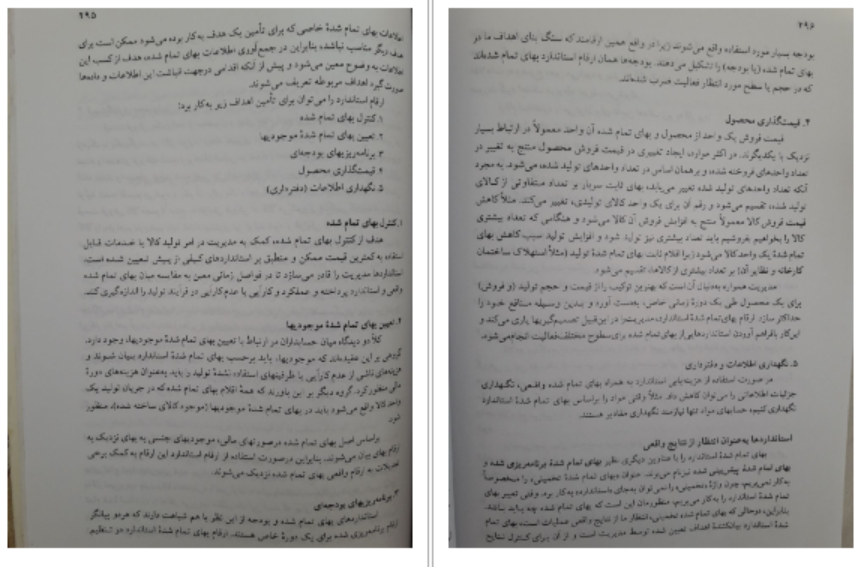 ۲۹۵
اطلاعات بهای تمام شدهٔ خاصی که برای تأمین یک هدف به‌کار بوده می‌شود ممکن است برای
هدف دیگر مناسب نباشد، بنابراین در جمع‌آوری اطلاعات بهای تمام شده، هدف از کسب این
اطلاعات به وضوح معین می‌شود و پیش از آنکه اقدامی درجهت انباشت این اطلاعات و داده‌ها
صورت گیرد اهداف مربوطه تعریف می‌شوند.
ارقام استاندارد را می‌توان برای تأمین اهداف زیر به‌کار برد:
۱. کنترل بهای تمام شده
۲. تعیین بهای تمام شدهٔ موجودیها
۳. برنامه‌ریزیهای بودجه‌ای
۴. قیمتگذاری محصول
۵. نگهداری اطلاعات (دفترداری)
۱. کنترل بهای تمام شده
هدف از کنترل بهای تمام شده، کمک به مدیریت در امر تولید کالا یا خدمات قابل
استفاده به کمترین قیمت ممکن و منطبق بر استانداردهای کیفی از پیش تعیین شده است.
استانداردها مدیریت را قادر می‌سازد تا در فواصل زمانی معین به مقایسه میان بهای تمام شده
واقعی و استاندارد پرداخته و عملکرد و کارآیی یا عدم‌کارآیی در فرآیند تولید را اندازه‌گیری کند.
۲. تعیین بهای تمام شدهٔ موجودیها
کلاً دو دیدگاه میان حسابداران در ارتباط با تعیین بهای تمام شدهٔ موجودیها، وجود دارد.
گروهی بر این عقیده‌اند که موجودیها، باید برحسب بهای تمام شدهٔ استاندارد بیان شوند و
هزینه‌های ناشی از عدم کارآیی یا ظرفیتهای استفاده نشدهٔ تولید را باید به‌عنوان هزینه‌های دورهٔ
مالی منظور کرد. گروه دیگر بر این باورند که همهٔ اقلام بهای تمام شده‌که در جریان تولید یک
واحد کالا واقع می‌شود باید در بهای تمام شدهٔ موجودیها (موجود کالای ساخته شده)، منظور
شود.
براساس اصل بهای تمام شده درصورتهای مالی، موجودیهای جنسی به بهای نزدیک به
ارقام بهای بیان می‌شوند. بنابراین درصورت استفاده از ارقام استاندارد این ارقام به کمک برخی
تعدیلات به ارقام واقعی بهای تمام شده نزدیک می‌شوند.
۳. برنامه‌ریزیهای بودجه‌ای
استانداردهای بهای تمام شده و بودجه از این نظر با هم شباهت دارند که هردو بیانگر
ارقام برنامه‌ریزی شده برای یک دورهٔ خاص هستند. ارقام بهای تمام شدهٔ استاندارد در تنظیم
۲۹۶
بودجه بسیار مورد استفاده واقع می‌شوند زیرا در واقع همین ارقامند که سنگ بنای اهداف ما در
بهای تمام شده (یا بودجه) را تشکیل می‌دهند. بودجه‌ها همان ارقام استاندارد بهای تمام شده‌ای
که در حجم یا سطح مورد انتظار فعالیت ضرب شده‌اند.
۴. قیمتگذاری محصول
قیمت فروش یک واحد از محصول و بهای تمام شده آن واحد معمولاً در ارتباط بسیار
نزدیک با یکدیگرند. در اکثر موارد، ایجاد تغییری در قیمت فروش محصول منتج به تغییر در
تعداد واحدهای فروخته شده، و برهمان اساس در تعداد واحدهای تولید شده، می‌شود. به مجرد
آنکه تعداد واحدهای تولید شده تغییر می‌یابد، بهای ثابت سربار بر تعداد متفاوتی از کالای
تولید شده، تقسیم می‌شود و رقم آن برای یک واحد کالای تولیدی، تغییر می‌کند. مثلاً کاهش
قیمت فروش کالا معمولاً منتج به افزایش فروش آن کالا می‌شود و هنگامی که تعداد بیشتری
کالا را بخواهیم بفروشیم باید تعداد بیشتری نیز تولید شود و افزایش تولید سبب کاهش بهای
تمام شدهٔ یک واحد کالا می‌شود زیرا اقلام ثابت بهای تمام شدهٔ تولید (مثلاً استهلاک ساختمان
کارخانه و نظایر آن) بر تعداد بیشتری از کالاها، تقسیم می‌شود.
مدیریت همواره به‌دنبال آن است که بهترین ترکیب را از قیمت و حجم تولید (و فروش)
برای یک محصول طی یک دورهٔ زمانی خاص، به‌دست آورد و بدین وسیله منافع خود را
حداکثر سازد. ارقام بهای تمام شدهٔ استاندارد، مدیریت را در این‌قبیل تصمیم‌گیریها یاری می‌کند و
این‌کار با فراهم آوردن استانداردهایی از بهای تمام شده برای سطوح مختلف فعالیت انجام می‌شود.
۵. نگهداری اطلاعات و دفترداری
در صورت استفاده از هزینه‌یابی استاندارد به همراه بهای تمام شده واقعی، نگهداری
جزئیات اطلاعاتی را می‌توان کاهش داد. مثلاً وقتی مواد را براساس بهای تمام شدهٔ استاندارد
نگهداری کنیم، حسابهای مواد تنها نیازمند نگهداری مقادیر هستند.
استانداردها به‌عنوان انتظار از نتایج واقعی
بهای تمام شدهٔ استاندارد را با عناوین دیگری نظیر بهای تمام شدهٔ برنامه‌ریزی شده و
بهای تمام شدهٔ پیش‌بینی شده نیز نام می‌برند. عنوان «بهای تمام شدهٔ تخمینی» را مخصوصاً
به‌کار نمی‌بریم، چون واژهٔ «تخمینی» را نمی‌توان به‌جای «استاندارد» به‌کار برد. وقتی تعبیر بهای
تمام شدهٔ استاندارد را به‌کار می‌بریم، منظورمان این است که بهای تمام شده چه باید باشد.
بنابراین، درحالی که بهای تمام شده تخمینی، انتظار ما از نتایج واقعی عملیات است، بهای تمام
شدهٔ استاندارد بیانکنندهٔ اهداف تعیین شده توسط مدیریت است و از آن برای کنترل نتایج